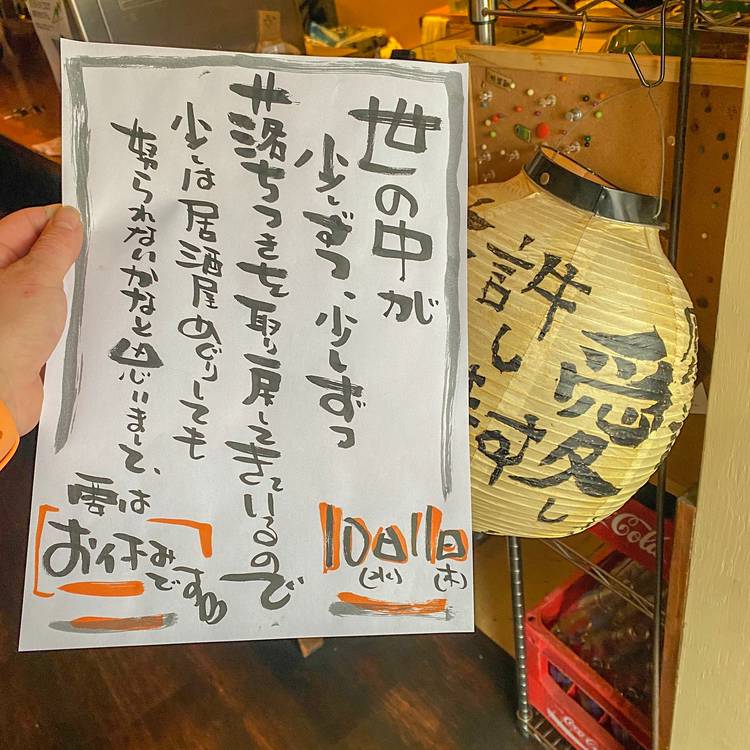 世の中が
少しずつ、少しずつ
落ちつきを取り戻してきているので
少しは居酒屋めぐりしても
怒られないかなと思いまして、
10日(水)
11日(木)
雲は
お休み
です
愛し
許し
Cola